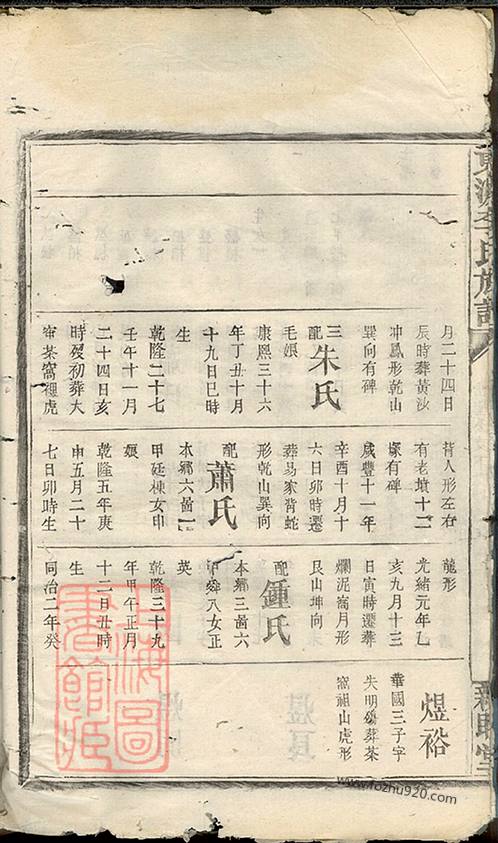 東源李氏族譜
親睦堂
月二十四日
辰時葬黃沙
冲鳳形乾山
巽向有碑
三配朱氏
毛娘
康熙三十六
年丁丑十月
十九日巳時
生
乾隆二十七
壬午十一月
二十四日亥
時歿初葬大
窄茶窩裡虎
背人形左右
有老墳十二
塚有碑
咸豐十一年
辛酉十月十
六日卯時遷
葬易家背蛇
形乾山巽向
配蕭氏
本鄉六啚一
甲廷棟女申
娘
乾隆五年庚
申五月二十
七日卯時生
龍形
光緒元年乙
亥九月十三
日寅時遷葬
爛泥窩月形
艮山坤向
配鍾氏
本鄉三啚六
甲舜八女正
英
乾隆三十九
年甲午正月
十二日丑時
生
同治二年癸
煜裕
華國三子字
失明殤葬茶
窩祖山虎形
上海圖
書館藏
www.fozhu920.com